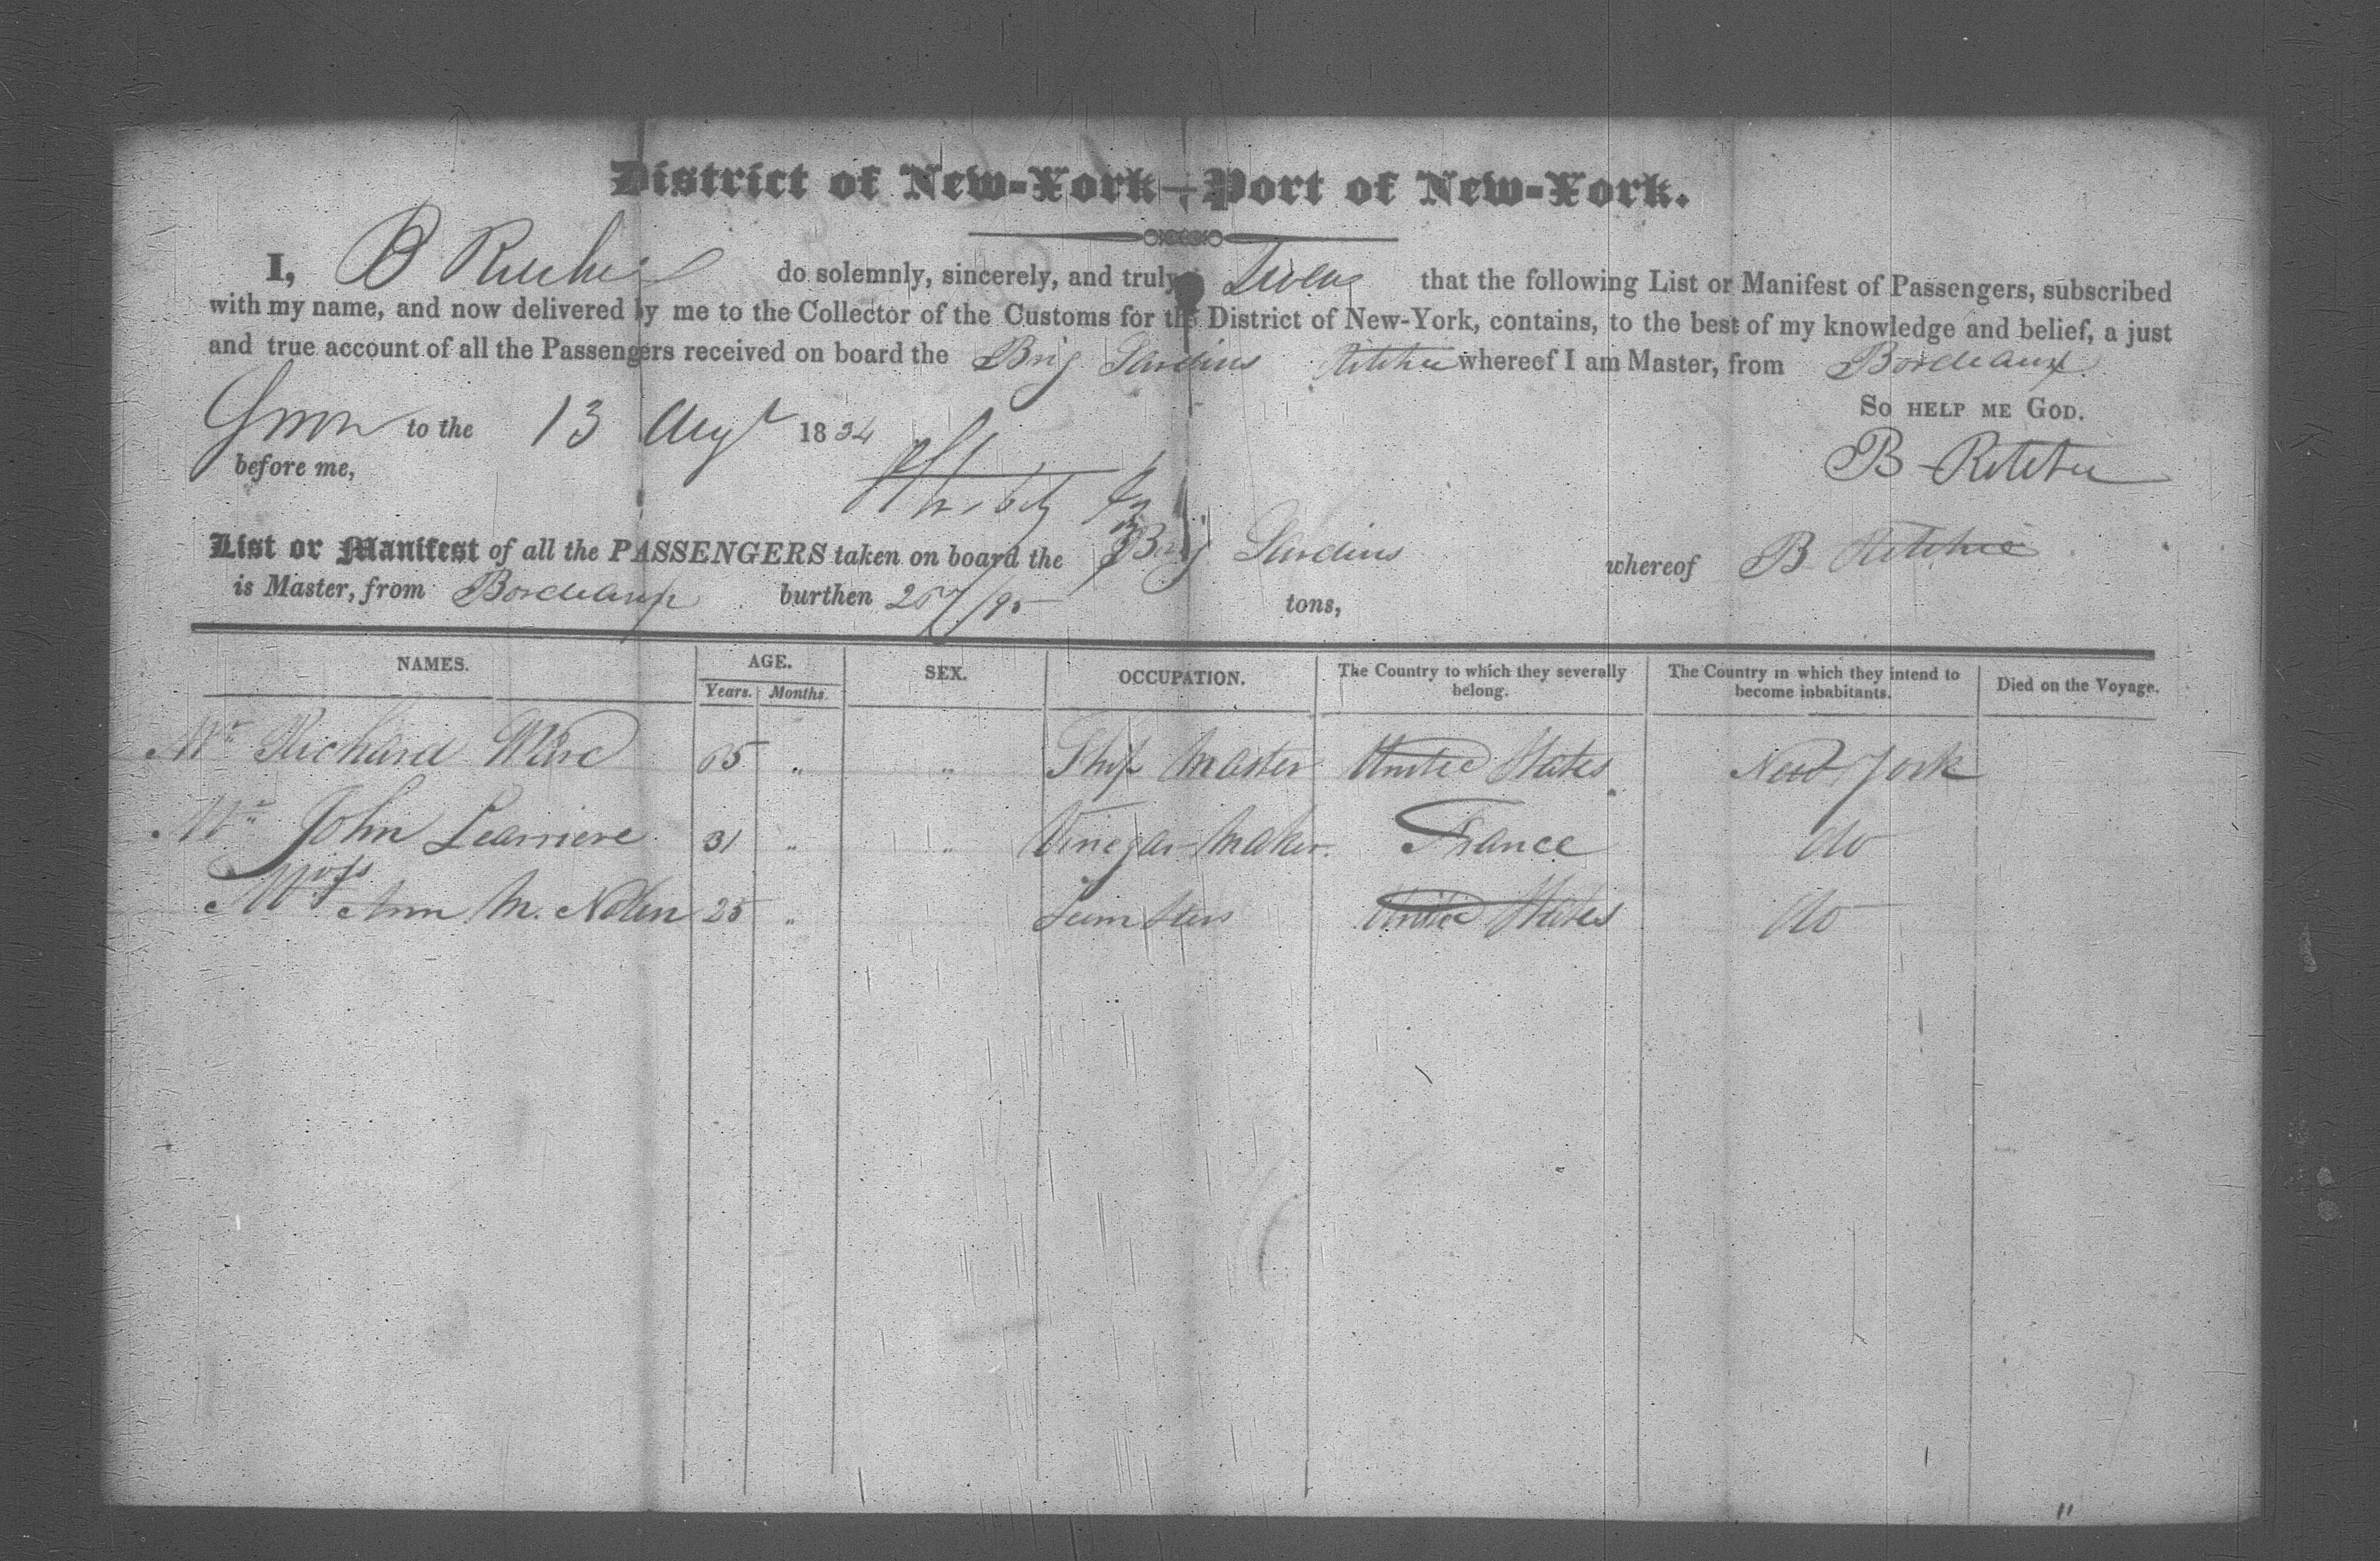 District of New-York—Port of New-York.
I, B Ritchie do solemnly, sincerely, and truly Swear that the following List or Manifest of Passengers, subscribed
with my name, and now delivered by me to the Collector of the Customs for the District of New-York, contains, to the best of my knowledge and belief, a just
and true account of all the Passengers received on board the Brig Sardius Ritchie whereof I am Master, from Bordeaux
So help me God.
Sworn to the 13 Augt 1834
B Ritchie
before me,
List or Manifest of all the PASSENGERS taken on board the Brig Sardius whereof B Ritchie
is Master, from Bordeaux burthen 257/95 tons,
NAMES. AGE. SEX. OCCUPATION. The Country to which they severally belong. The Country in which they intend to become inhabitants. Died on the Voyage.
Years. Months.
Mr Richard 65 " " Ship Master United States New York
Mr John 31 " " Vinegar Maker France do
Miss Ann M. Nolen 25 " United States do
"